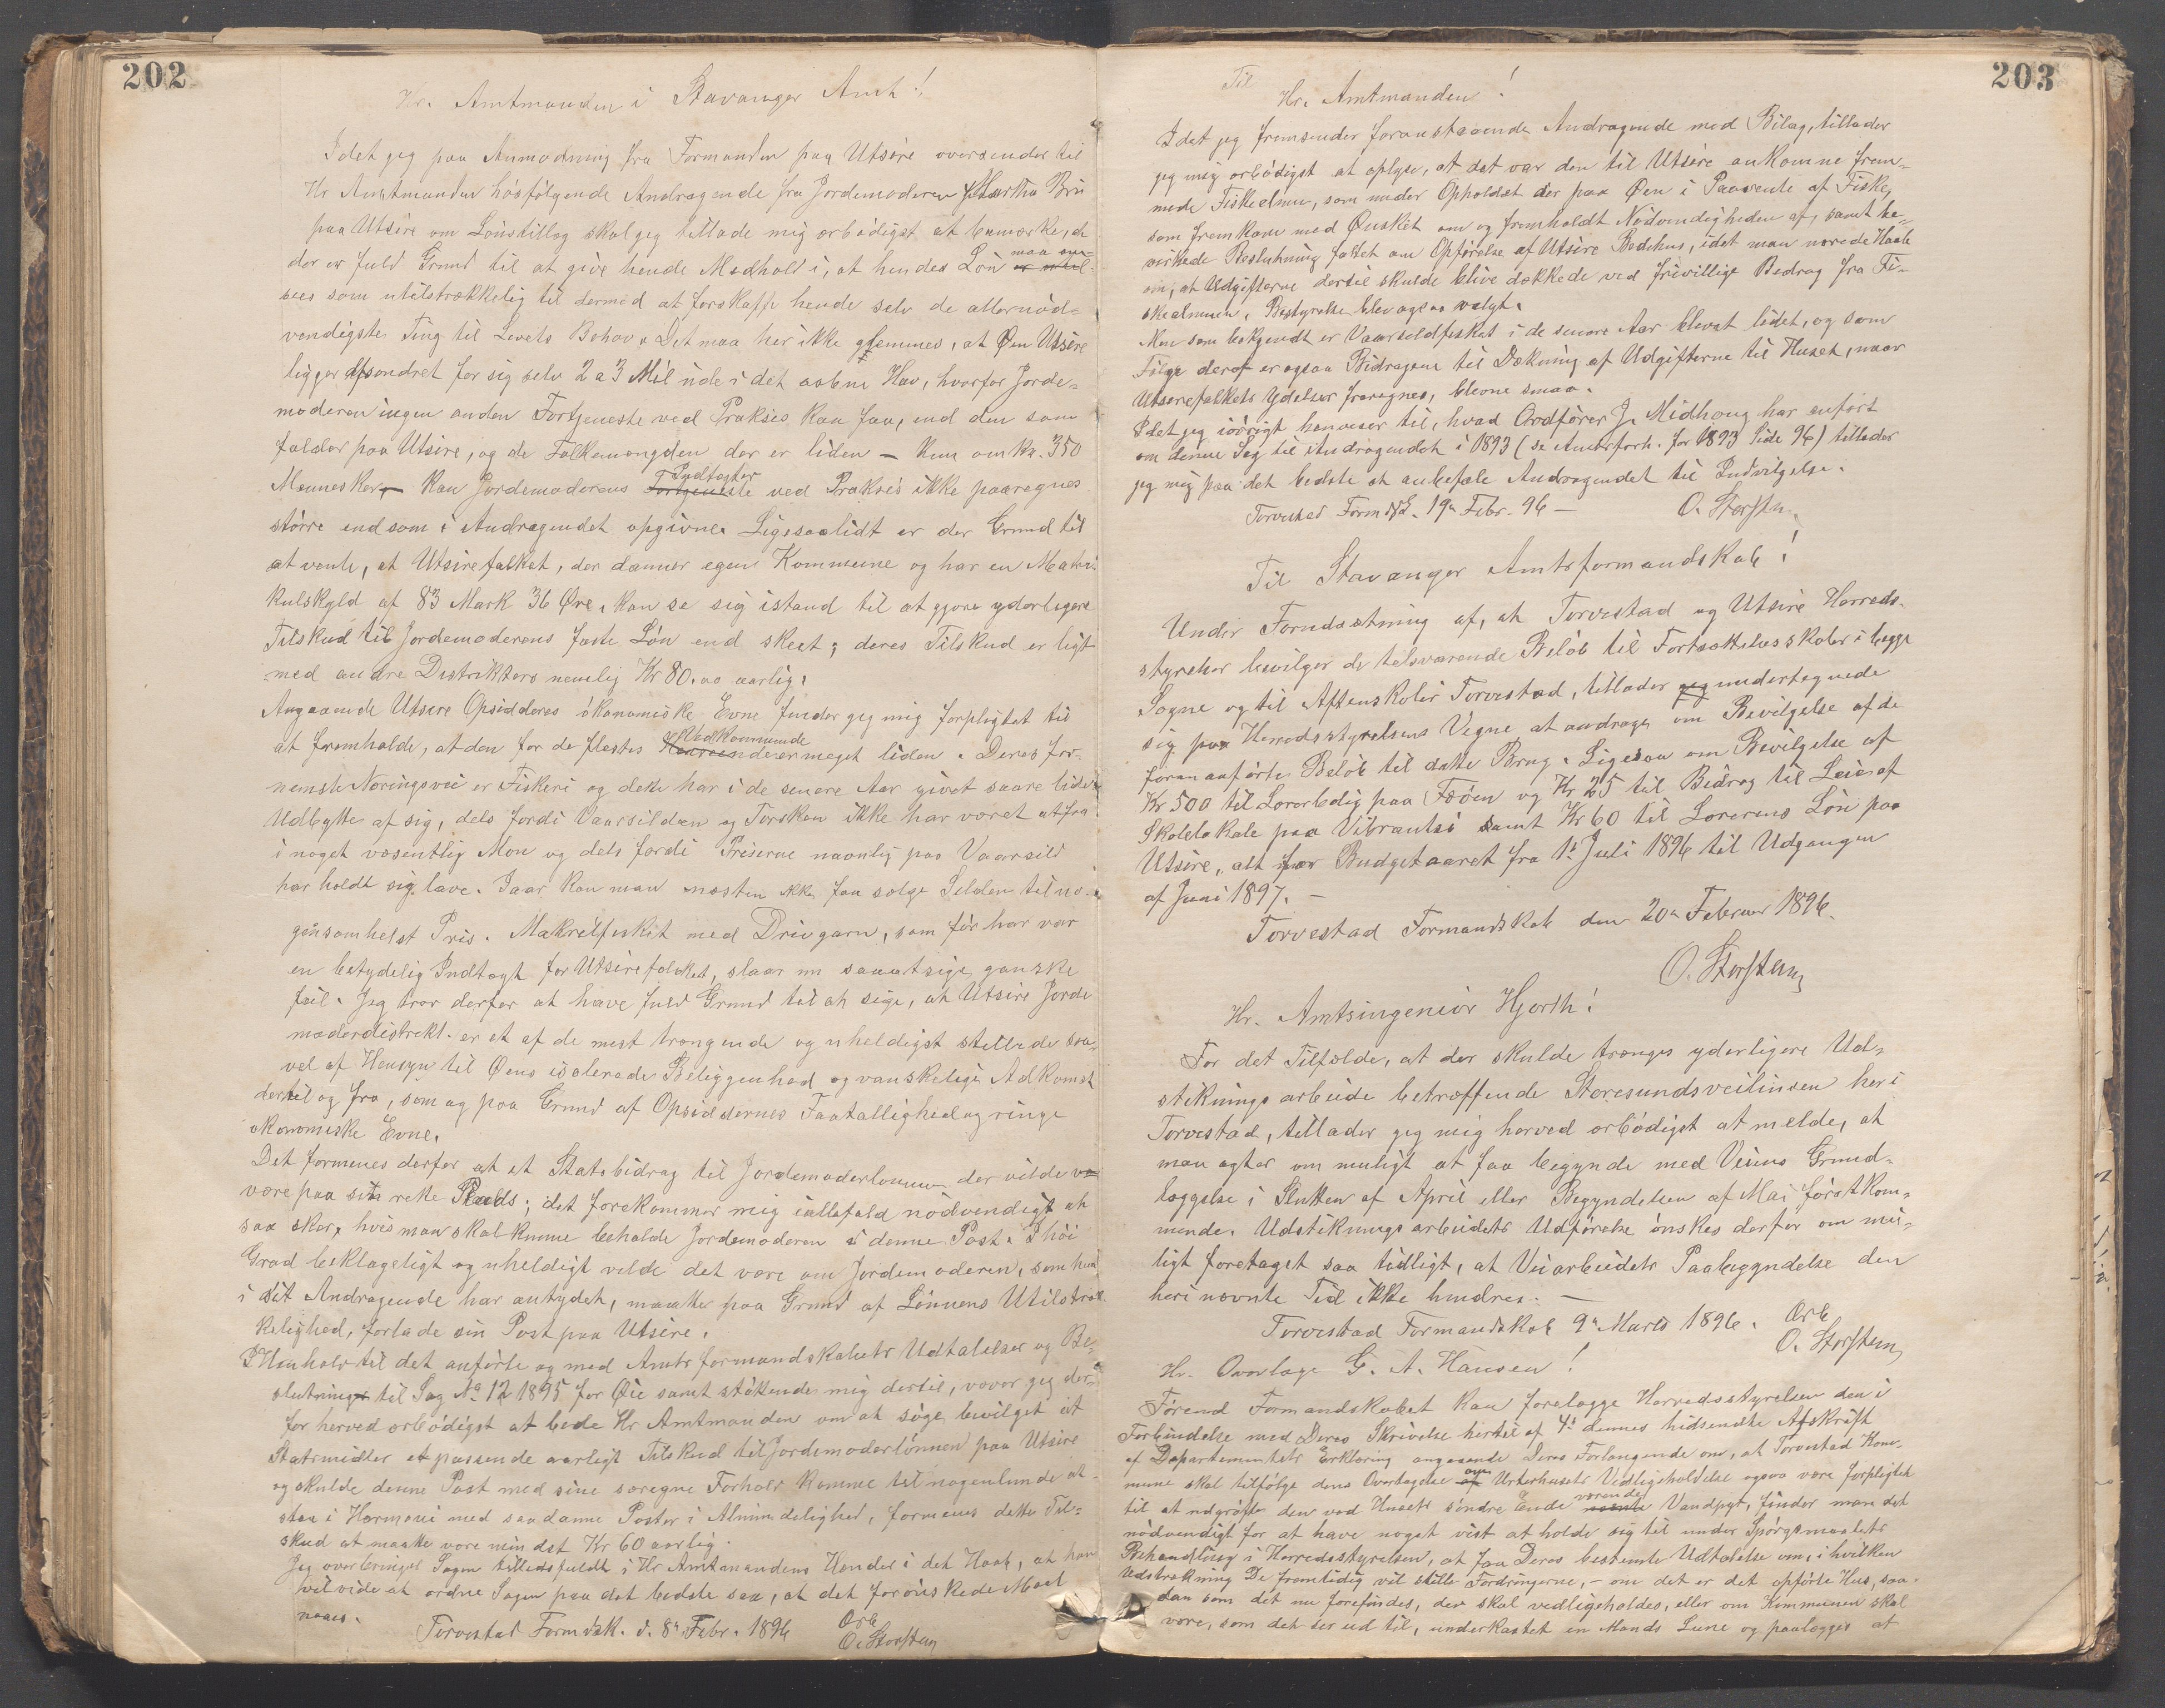 202
Hr. Amtmanden i Stavanger Amt!
Idet jeg paa Anmodning fra Formanden paa Utsire oversender til
Hr Amtmanden hosfølgende Andragende fra Jordemoderen Martha Bru
paa Utsire om Lønstillæg skal jeg tillade mig ærbødigst at bemærke, at
der er fuld Grund til at give hende Medhold i, at hendes Løn maa an-
sees som utilstrækkelig til dermed at forskaffe hende selv de allernød-
vendigste Ting til Livets Behov. Det maa her ikke glemmes, at Øen Utsire
ligger afsondret for sig selv 2 a 3 Mil ude i det aabne Hav, hvorfor Jorde-
moderen ingen anden Fortjeneste ved Praksis kan faa, end den som
falder paa Utsire, og da Folkemængden der er liden – kun omkr. 350
Mennesker – kan Jordemoderens Indtægter ved Praksis ikke paaregnes
større end som i Andragendet opgivne. Ligesaalidt er der Grund til
at vente, at Utsirefolket, der danner egen Kommune og har en Matri-
kulskyld af 83 Mark 36 Øre, kan se sig istand til at gjøre yderligere
Tilskud til Jordemoderens faste Løn end skeet; deres Tilskud er ligt
med andre Distrikters nemlig Kr 80.00 aarlig.
Angaaende Utsire Opsidderes økonomiske Evne finder jeg mig forpligtet til
at fremholde, at den for de flestes Vedkommende er meget liden. Deres for-
nemste Næringsvei er Fiskeri og dette har i de senere Aar givet saare lidet
Udbytte af sig, dels fordi Vaarsilden og Torsken ikke har været at faa
i noget væsentlig Mon og dels fordi Priserne navnlig paa Vaarsild
har holdt sig lave. Iaar kan man næsten ikke faa sælge Silden til no-
gensomhelst Pris. Makrelfisket med Drivgarn, som før har var
en betydelig Indtægt for Utsirefolket, slaar nu saaatsige ganske
feil. Jeg tror derfor at have fuld Grund til at sige, at Utsire Jorde
moderdistrikt er et af de mest trængende og uheldigst stillede saa-
vel af Hensyn til Øens isolerede Beliggenhed og vanskelige Adkomst
dertil og fra, som og paa Grund af Opsiddernes Faatallighed og ringe
økonomiske Evne.
Det formenes derfor at et Statsbidrag til Jordemoderlønnen der vilde
være paa sin rette Plads; det forekommer mig iallefald nødvendigt at
saa sker, hvis man skal kunne beholde Jordemoderen i denne Post. I høi
Grad beklageligt og uheldigt vilde det være om Jordemoderen, som hun
i sit Andragende har antydet, maatte paa Grund af Lønnens Utilstræk
kelighed, forlade sin Post paa Utsire.
I Henhold til det anførte og med Amtsformandskabets Udtalelser og Be-
slutning til Sag No 12 1895 for Øie samt støttende mig dertil, vover jeg der-
for herved ærbødigst at bede Hr Amtmanden om at søge bevilget af
Statsmidler et passende aarligt Tilskud til Jordemoderlønnen paa Utsire
og skulde denne Post med sine særegne Forhold komme til nogenlunde at
staa i Harmoni med saadanne Poster i Almindelighed, formenes dette Til-
skud at maatte være mindst Kr 60 aarlig.
Jeg overbringer Sagen tillidsfuldt i Hr Amtmandens Hænder i det Haab, at han
vil vide at ordne Sagen paa det bedste saa, at det forønskede Maal
naaes.
Torvestad Formdsk. d. 8de Febr. 1896 Ærb
O. Storsteen
203
Til
Hr. Amtmanden!
Idet jeg fremsender foranstaaende Andragende med Bilag, tillader
jeg mig ærbødigst at oplyse, at det var den til Utsire ankomne frem-
mede Fiskealmue, som under Opholdet der paa Øen i Paavente af Fiske,
som fremkom med Ønsket om og fremholdt Nødvendigheden af, samt be-
virkede Beslutning fattet om Opførelse af Utsire Bedehus, idet man nærede Haab
om, at Udgifterne dertil skulde blive dækkede ved frivillige Bidrag fra Fi-
skealmuen. Bestyrelse blev ogsaa valgt.
Men som bekjendt er Vaarsildfisket i de senere Aar blevet lidet, og som
Følge deraf er ogsaa Bidragene til Dækning af Udgifterne til Huset, naar
Utsirefolkets Ydelser fraregnes, blevne smaa.
Idet jeg iøvrigt henviser til, hvad Ordfører J. Midhoug har anført
om denne Sag til Andragendet i 1893 (se Amtsforh. for 1893 Side 96) tillader
jeg mig paa det bedste at anbefale Andragendet til Indvilgelse.
Torvestad Formdsk. 19de Febr. 96 – O. Storsteen
Til Stavanger Amtsformandskab!
Under Forudsætning af, at Torvestad og Utsire Herreds-
styrelser bevilger de tilsvarende Beløb til Fortsættelsesskoler i begge
Sogne og til Aftenskoler Torvestad, tillader jeg undertegnede
sig paa Herredsstyrelsens Vegne at andrage om Bevilgelse af de
foran anførte Beløb til dette Brug. Ligesaa om Bevilgelse af
Kr 500 til Lærerbolig paa Feøen og Kr 25 til Bidrag til Leie af
Skolelokale paa Vibrantsø samt Kr 60 til Lærerens Løn paa
Utsire, alt for Budgetaaret fra 1ste Juli 1896 til Udgangen
af Juni 1897. –
Torvestad Formandskab den 20de Februar 1896.
O. Storsteen
Hr. Amtsingeniør Hjorth!
For det Tilfælde, at der skulde trænges yderligere Ud-
stikningsarbeide betræffende Storesundsveilinien her i
Torvestad, tillader jeg mig herved ærbødigst at melde, at
man agter om muligt at faa begynde med Veiens Grund-
læggelse i Slutten af April eller Begyndelsen af Mai førstkom-
mende. Udstikningsarbeidets Udførelse ønskes derfor om mu-
ligt foretaget saa tidligt, at Veiarbeidets Paabegyndelse den
heri nævnte Tid ikke hindres. –
Torvestad Formandskab 9de Marts 1896. Ærb
O. Storsteen
Hr. Overlæge G. A. Hansen!
Førend Formandskabet kan forelægge Herredsstyrelsen den i
Forbindelse med Deres Skrivelse hertil af 4de dennes hidsendte Afskrift
af Departementets Erklæring angaaende Deres Forlangende om, at Torvestad Kom-
mune skal tilfølge dens Overtagelse af Urterhusets Vedligeholdelse ogsaa være forpligtet
til at udgrøfte den ved Husets søndre Ende værende Vandpyt, finder man det
nødvendigt for at have noget vist at holde sig til under Spørgsmaalets
Behandling i Herredsstyrelsen, at faa Deres bestemte Udtalelse om, i hvilken
Udstrækning De fremtidig vil stille Fordringerne, – om det er det opførte Hus, saa-
dan som det nu forefindes, der skal vedligeholdes, eller om Kommunen skal
være, som det ser ud til, underkastet en Mands Lune og paalægges at